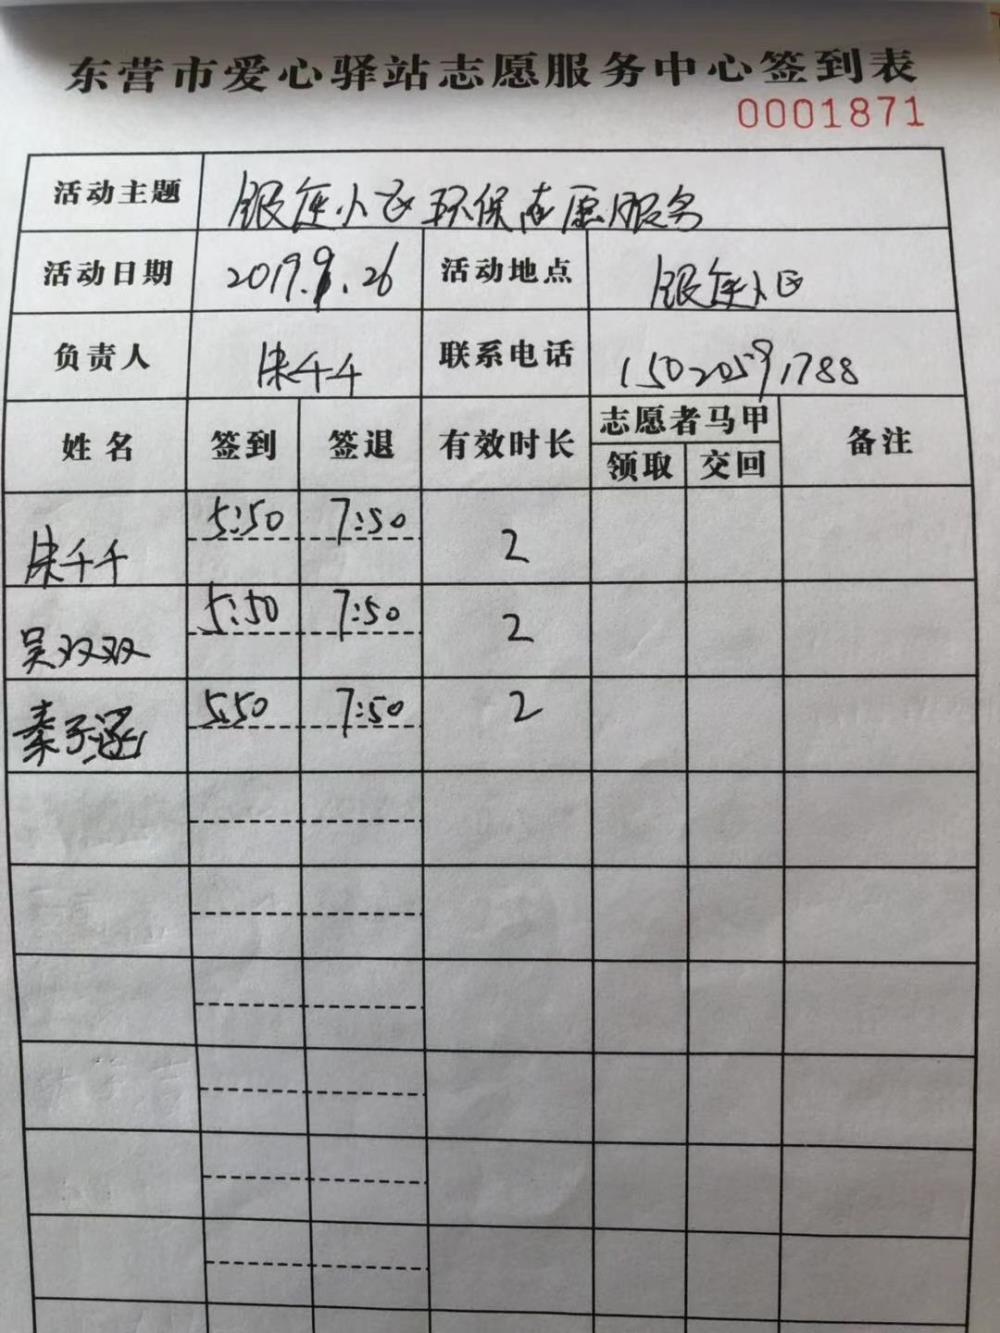 东营市爱心驿站志愿服务中心签到表
0001871
活动主题 银座小区环保志愿服务
活动日期 2019.9.26 活动地点 银座小区
负责人 朱千千 联系电话 15020591788
姓名 签到 签退 有效时长 志愿者马甲 备注
领取 交回
朱千千 5:50 7:50 2
吴双双 5:50 7:50 2
秦子涵 5:50 7:50 2